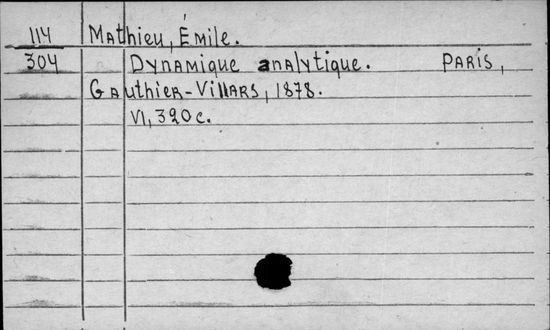 114 Mathieu, Émile.
304 Dynamique analytique. Paris,
Gauthier-Villars, 1878.
VI, 320 c.